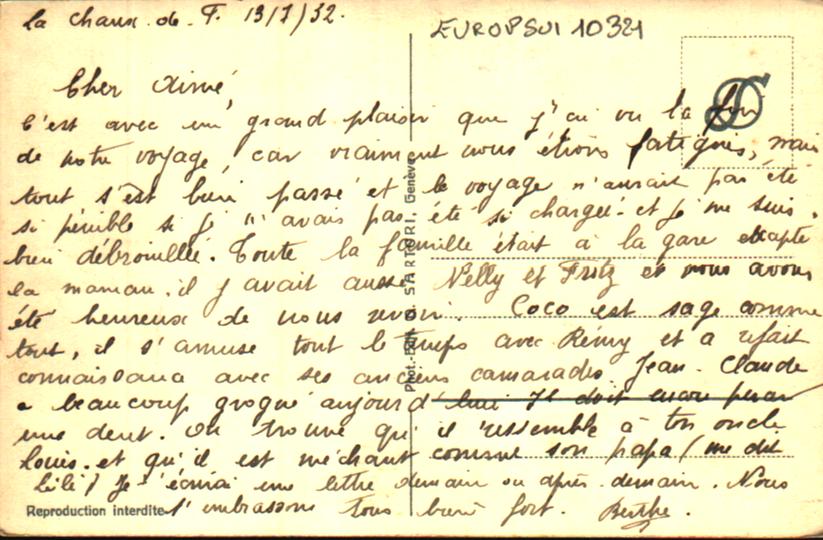 La Chaux-de-F. 13/7/32.
EUROPSUI 10321
Cher Aimé,
C'est avec un grand plaisir que j'ai vu la fin
de notre voyage, car vraiment nous étions fatigués, mais
tout s'est bien passé et le voyage n'aurait pas été
si pénible si je n'avais pas été si chargée et je me suis
bien débrouillée. Toute la famille était à la gare excepté
la maman. il y avait aussi Nelly et Fritz et nous avons
été heureux de nous revoir. Coco est sage comme
tout, il s'amuse tout le temps avec Rémy et a refait
connaissance avec ses anciens camarades. Jean-Claude
a beaucoup grogné aujourd'hui Il doit encore percer
une dent. On trouve qu'il ressemble à ton oncle
Louis. et qu'il est méchant comme son papa (me dit
Lili) Je t'écrirai une lettre demain ou après-demain. Nous
t'embrassons tous bien fort. Berthe.
Reproduction interdite
SARTORI, Genève